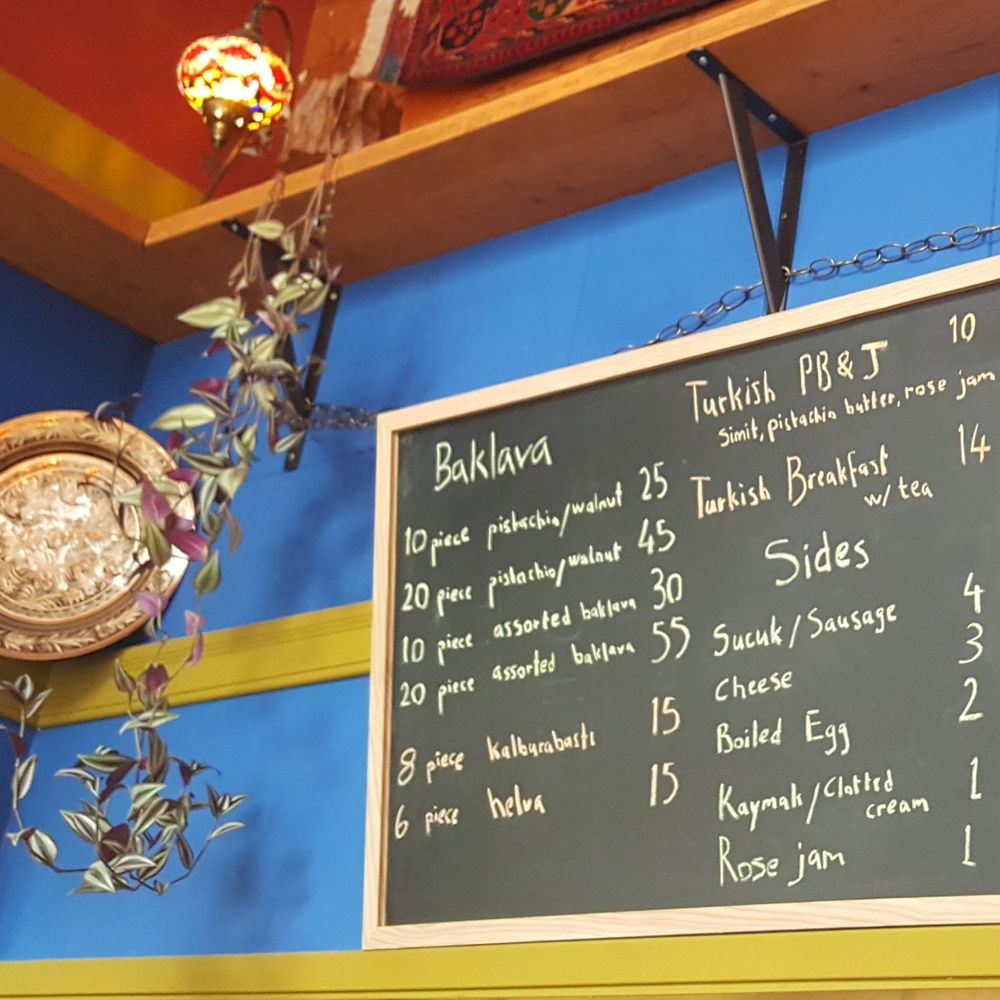 Baklava
10 piece pistachio/walnut 25
20 piece pistachio/walnut 45
10 piece assorted baklava 30
20 piece assorted baklava 55
8 piece kalburabastı 15
6 piece helva 15
Turkish PB&J 10
Simit, pistachio butter, rose jam
Turkish Breakfast 14
w/ tea
Sides
Sucuk/Sausage 4
Cheese 3
Boiled Egg 2
Kaymak/Clotted 1
cream
Rose jam 1